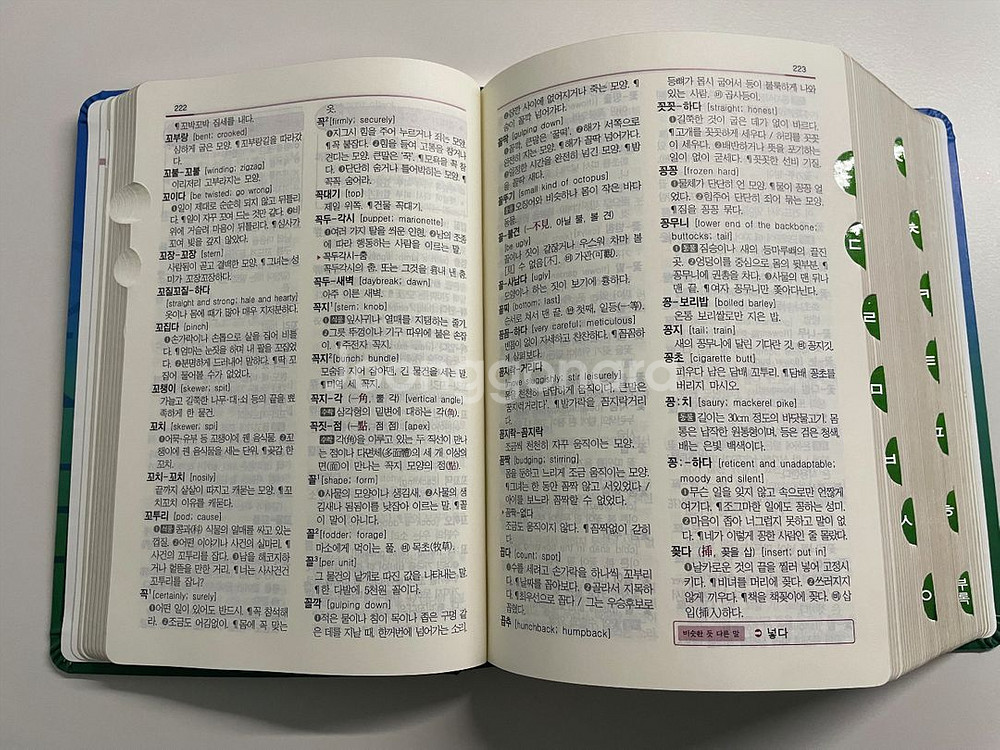 222
¶꼬박꼬박 집세를 내다.
꼬부랑 [bent; crooked]
심하게 굽은 모양. ¶꼬부랑길을 따라갔
다.
꼬불-꼬불 [winding; zigzag]
이리저리 고부라지는 모양.
꼬이다 [be twisted; go wrong]
❶일이 제대로 순순히 되지 않고 뒤틀리
다. ¶일이 자꾸 꼬여 드는 것만 같다. ❷비
위에 거슬려 마음이 뒤틀리다. ¶심사가
꼬여 빛을 갚지 않았다.
꼬장-꼬장 [stern]
사람됨이 곧고 결백한 모양. ¶그녀는 성
미가 꼬장꼬장하다.
꼬질꼬질-하다
[straight and strong; hale and hearty]
옷이나 몸에 때가 많아 매우 지저분하다.
꼬집다 [pinch]
❶손가락이나 손톱으로 살을 집어 비틀
다. ¶엄마는 눈짓을 하며 내 팔을 꼬집었
다. ❷분명하게 드러내어 말하다. ¶딱 꼬
집어 물어볼 수가 없었다.
꼬챙이 [skewer; spit]
가늘고 길쭉한 나무·대·쇠 등의 끝을 뾰
족하게 한 물건.
꼬치 [skewer; spi]
❶어묵·유부 등 꼬챙이에 꿴 음식물. ❷꼬
챙이에 꿴 음식물을 세는 단위. ¶곶감 한
꼬치.
꼬치-꼬치 [nosily]
끝까지 샅샅이 따지고 캐묻는 모양. ¶꼬
치꼬치 이유를 캐묻다.
꼬투리 [pod; cause]
❶식물 콩과(科) 식물의 열매를 싸고 있는
껍질. ❷어떤 이야기나 사건의 실마리. ¶
사건의 꼬투리를 잡다. ❸남을 해코지하
거나 헐뜯을 만한 거리. ¶너는 사사건건
꼬투리를 잡니?
꼭¹ [certainly; surely]
❶어떤 일이 있어도 반드시. ¶꼭 참석해
라. ❷조금도 어김없이. ¶몸에 꼭 맞는
옷.
꼭² [firmly; securely]
❶지그시 힘을 주어 누르거나 죄는 모양.
¶꼭 붙잡다. ❷힘을 들여 고통을 참거나
견디는 모양. 큰말은 '꾹'. ¶모욕을 꼭 참
다. ❸단단히 숨거나 틀어박히는 모양. ¶
꼭꼭 숨어라.
꼭대기 [top]
제일 위쪽. ¶건물 꼭대기.
꼭두-각시 [puppet; marionette]
❶여러 가지 탈을 씌운 인형. ❷남의 조종
에 따라 행동하는 사람을 이르는 말.
▸꼭두각시-춤
꼭두각시의 춤. 또는 그것을 흉내 낸 춤.
꼭두-새벽 [daybreak; dawn]
아주 이른 새벽.
꼭지¹ [stem; knob]
❶식물 잎사귀나 열매를 지탱하는 줄기.
❷그릇 뚜껑이나 기구 따위에 붙은 손잡
이. ¶주전자 꼭지.
꼭지² [bunch; bundle]
모숨을 지어 잡아맨, 긴 물건을 세는 말.
¶미역 세 꼭지.
꼭지-각 (―角, 뿔 각) [vertical angle]
수학 삼각형의 밑변에 대하는 각(角).
꼭짓-점 (―點, 점 점) [apex]
수학 각(角)을 이루고 있는 두 직선이 만나
는 점이나 다면체(多面體)의 세 개 이상의
면(面)이 만나는 꼭지 모양의 점(點).
꼴¹ [shape; form]
❶사물의 모양이나 생김새. ❷사물의 생
김새나 됨됨이를 낮잡아 이르는 말. ¶꼴
이 말이 아니다.
꼴² [fodder; forage]
마소에게 먹이는 풀. ㉥ 목초(牧草).
꼴³ [per unit]
그 물건의 낱개로 따진 값을 나타내는 말.
¶한 다발에 5천원 꼴이다.
꼴깍 [gulping down]
❶적은 물이나 침이 목이나 좁은 구멍 같
은 데를 지날 때, 한꺼번에 넘어가는 소리.
223
❷잠깐 사이에 없어지거나 죽는 모양. ¶
숨이 꼴깍 넘어가다.
꼴딱 [gulping down]
❶꼴깍. 큰말은 '꿀떡'. ❷해가 서쪽으로
완전히 지는 모양. ¶해가 꼴딱 넘어가다.
❸일정한 시간을 완전히 넘긴 모양. ¶밤
을 꼴딱 새다.
꼴뚜기 [small kind of octopus]
동물 오징어와 비슷하나 몸이 작은 바다
동물.
꼴-불견 (―不見, 아닐 불, 볼 견)
[be ugly]
꼴이나 짓이 같잖거나 우스워 차마 볼
[見] 수 없음[不]. ㉥ 가관(可觀).
꼴-사납다 [ugly]
모양이나 하는 짓이 보기에 흉하다.
꼴찌 [bottom; last]
순서로 쳐서 맨 끝. ㉫ 첫째, 일등(一等).
꼼꼼-하다 [very careful; meticulous]
빈틈이 없이 자세하고 찬찬하다. ¶꼼꼼하
게 살펴보다.
꼼지락-거리다
[move sluggishly; stir leisurely]
몸을 천천히 답답하게 움직이다.
¶발가락을 꼼지락거리
다.
꼼지락-꼼지락
조금씩 천천히 자꾸 움직이는 모양.
꼼짝 [budging; stirring]
몸을 둔하고 느리게 조금 움직이는 모양.
¶그녀는 한 동안 꼼짝 않고 서있었다 /
아이를 보느라 꼼짝할 수 없었다.
▸꼼짝-없다
조금도 움직이지 않다. ¶꼼짝없이 갇히
다.
꼽다 [count; spot]
❶수를 세려고 손가락을 하나씩 꼬부리
다. ¶날짜를 꼽아보다. ❷골라서 지목하
다. ¶최우선으로 꼽다 / 그는 우승후보로
꼽혔다.
꼽추 [hunchback; humpback]
등뼈가 몹시 굽어서 등이 불룩하게 나와
있는 사람. ㉥ 곱사등이.
꼿꼿-하다 [straight; honest]
❶길쭉한 것이 굽은 데가 없이 바르다.
¶고개를 꼿꼿하게 세우다 / 허리를 꼿꼿
이 세우다. ❷배반하거나 뜻을 포기하는
일이 없이 굳세다. ¶꼿꼿한 선비 기질.
꽁꽁 [frozen hard]
❶물체가 단단히 언 모양. ¶물이 꽁꽁 얼
었다. ❷힘주어 단단히 죄어 묶는 모양.
¶짐을 꽁꽁 묶다.
꽁무니 [lower end of the backbone;
buttocks; tail]
❶동물 짐승이나 새의 등마루뼈의 끝진
곳. ❷엉덩이를 중심으로 몸의 뒷부분. ¶
꽁무니에 권총을 차다. ❸사물의 맨 뒤나
맨 끝. ¶여자 꽁무니만 쫓아다닌다.
꽁-보리밥 [boiled barley]
온통 보리쌀로만 지은 밥.
꽁지 [tail; train]
새의 꽁무니에 달린 기다란 깃. ㉥ 꽁지깃.
꽁초 [cigarette butt]
피우다 남은 담배 꼬투리. ¶담배 꽁초를
버리지 마시오.
꽁ː치 [saury; mackerel pike]
동물 길이는 30cm 정도의 바닷물고기. 몸
통은 납작한 원통형이며, 등은 검은 청색,
배는 은빛 백색이다.
꽁ː-하다 [reticent and unadaptable;
moody and silent]
❶무슨 일을 잊지 않고 속으로만 언짢게
여기다. ¶조그마한 일에도 꽁하는 성미.
❷마음이 좁아 너그럽지 못하고 말이 없
다. ¶네가 이렇게 꽁한 사람인 줄 몰랐다.
꽂다 (揷, 꽂을 삽) [insert; put in]
❶날카로운 것의 끝을 찔러 넣어 고정시
키다. ¶비녀를 머리에 꽂다. ❷쓰러지지
않게 끼우다. ¶책을 책꽂이에 꽂다. ㉥ 삽
입(揷入)하다.
비슷한 듯 다른 말 ➲ 넣다
ㄷ
ㄹ
ㅁ
ㅂ
ㅅ
ㅇ
ㅊ
ㅋ
ㅌ
ㅍ
ㅎ
부록